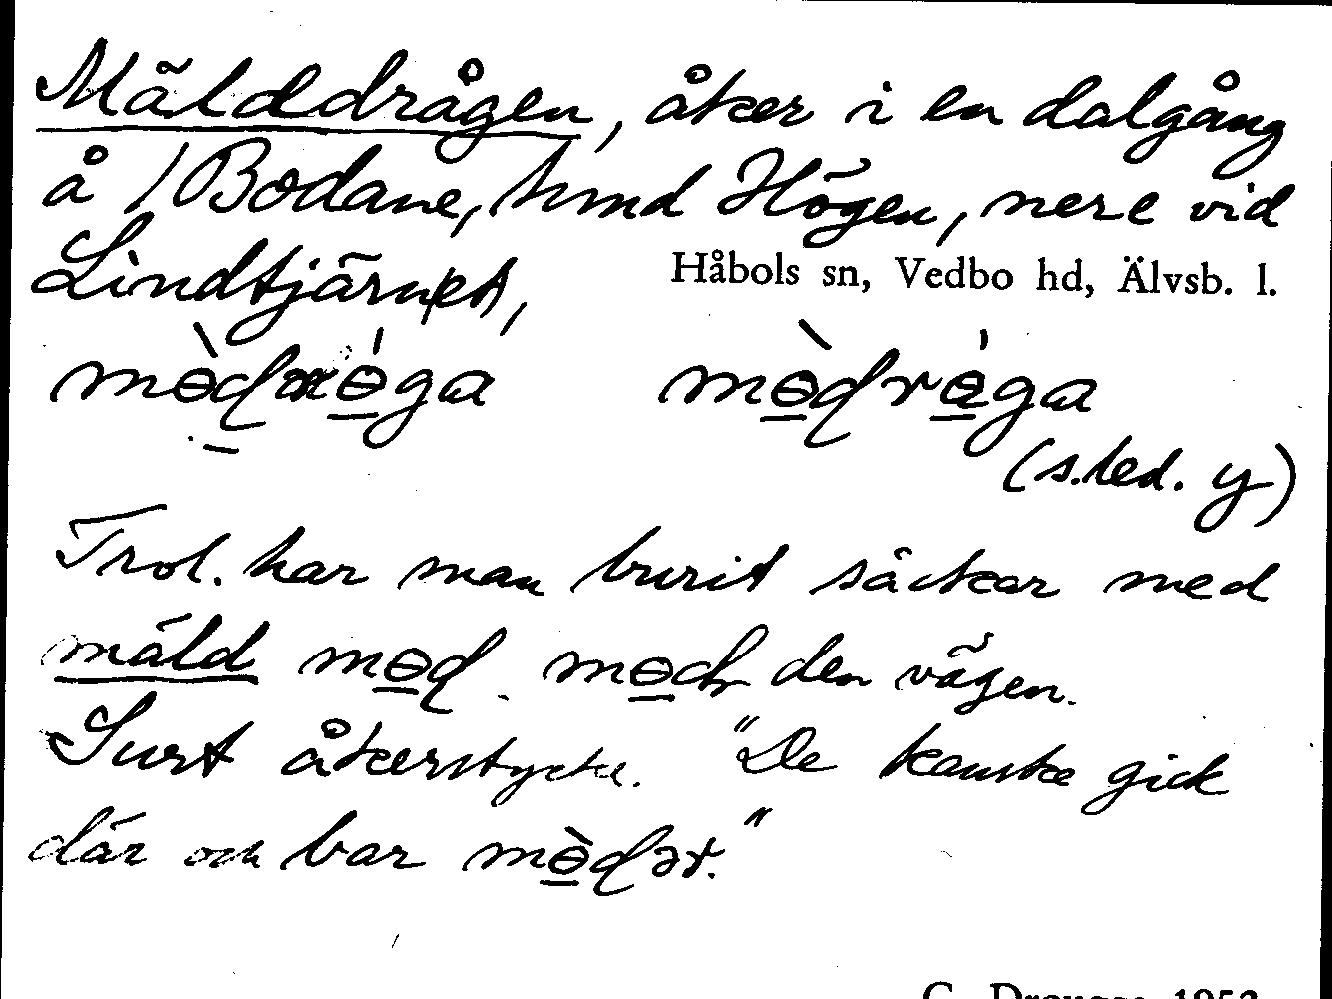 Mälddrågen, åker i en dalgång
å 1 Bodane, hmd Högen, nere vid
Lindtjärnet,
Håbols sn, Vedbo hd, Älvsb. l.
mɵ̀drɵ́ga mɵ̀drɵ́ga
(s.led. y)
Trol. har man burit säckar med
mäld mɵd den vägen.
Surt åkerstycke. "De kanske gick
där och bar mɵ̀dər."